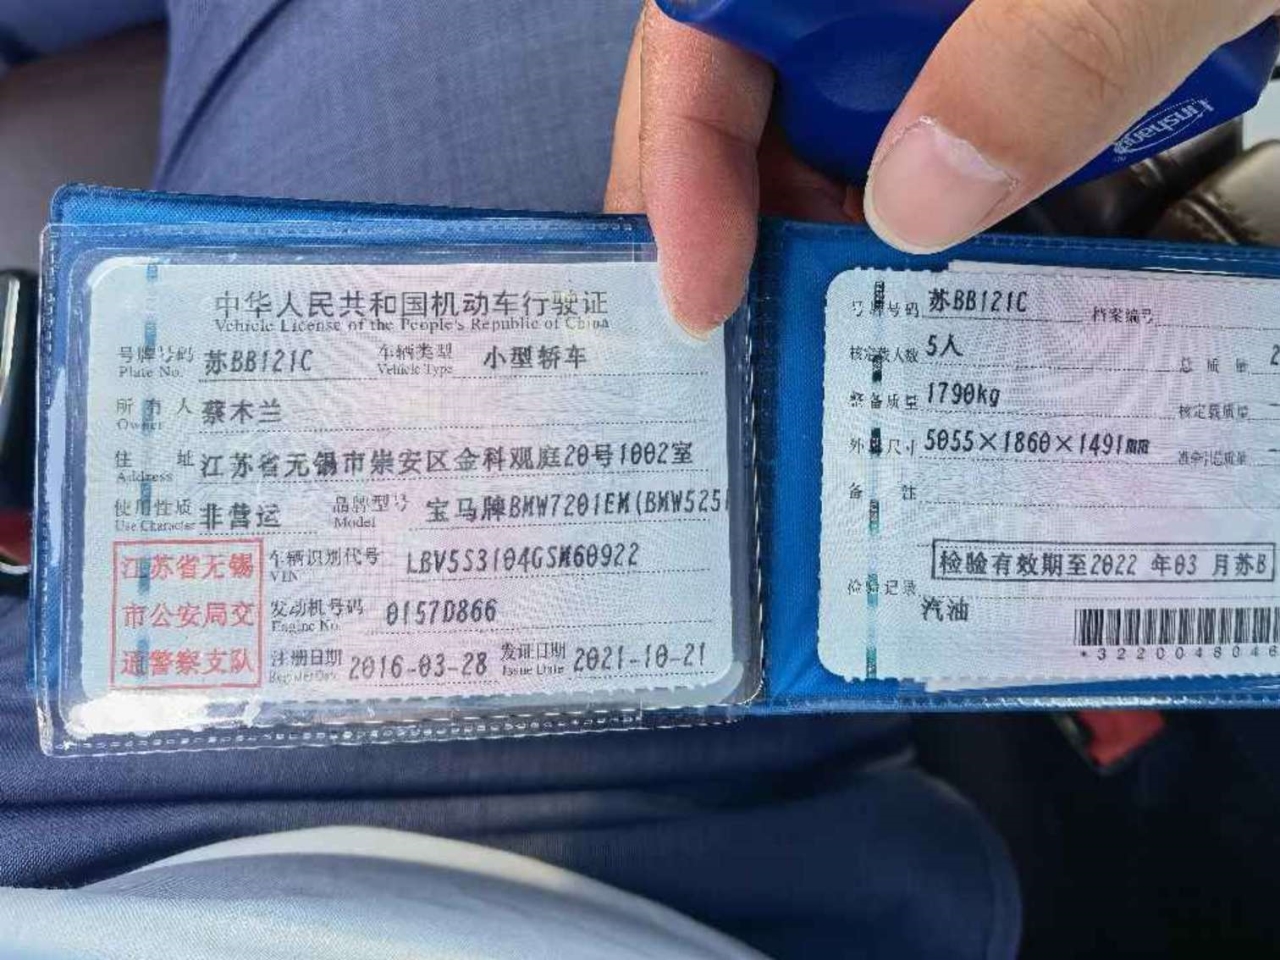 Linshang
中华人民共和国机动车行驶证
Vehicle License of the People's Republic of China
号牌号码 苏BB121C 车辆类型 小型轿车
Plate No. Vehicle Type
所有人 蔡木兰
Owner
住址 江苏省无锡市崇安区金科观庭20号1002室
Address
使用性质 非营运 品牌型号 宝马牌BMW7201EM(BMW525
Use Character Model
江苏省无锡
市公安局交
通警察支队
车辆识别代号 LBV5S3104GSM60922
VIN
发动机号码 0157D866
Engine No.
注册日期 2016-03-28 发证日期 2021-10-21
Register Date Issue Date
号牌号码 苏BB121C 档案编号
核定载人数 5人 总质量 2
整备质量 1790kg 核定载质量
外廓尺寸 5055×1860×1491mm 准牵引总质量
备注
检验有效期至2022年03月苏B
检验记录
汽油
*3220048046